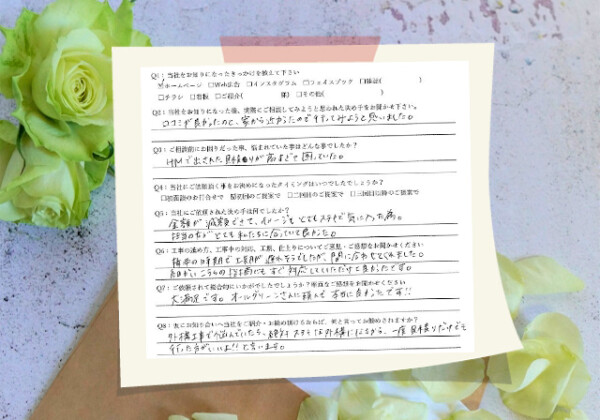 Q1：当社をお知りになったきっかけを教えて下さい
☑ホームページ □Web広告 □インスタグラム □フェイスブック □雑誌( )
□チラシ □看板 □ご紹介( 様) □その他( )
Q2：当社をお知りになった後、実際にご相談してみようと思われた決め手をお聞かせ下さい。
口コミが良かったのと、家から近かったので行ってみようと思いました。
Q3：ご相談前にお困りだった事、悩まれていた事はどんな事でしたか？
HMで出された見積りが高すぎて困っていた。
Q4：当社にご依頼頂く事をお決めになったタイミングはいつでしたでしょうか？
□初面談のお打合せで □初回のご提案で □二回目のご提案で □三回目以降のご提案で
Q5：当社にご依頼された決め手は何でしたか？
金額が減額できて、イメージもとてもステキで気に入った為。
担当の方がとても私たちに合っていて良かった。
Q6：工事の進め方、工事中の対応、工期、仕上りについてご意見・ご感想をお聞かせください
梅雨の時期で工期が遅れそうでしたが、間に合わせてくれました。
こちらの指摘にもすぐ対応していただけて良かったです。
Q7：ご依頼されて総合的にいかがでしたでしょうか？率直なご感想をお聞かせください
大満足です。オールグリーンさんに頼んで本当に良かったです!!
Q8：友にお知り合いへ当社をご紹介・お勧め頂けるならば、何と言ってお勧めされますか？
外構工事で悩んでいたら、絶対ステキな外構になるから、一度見積りだけでも
行った方がいいよ!!と言います。